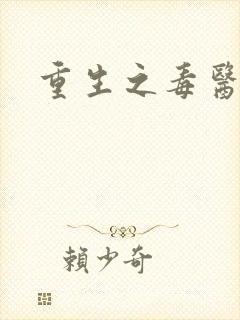 重生之毒醫
賴少奇